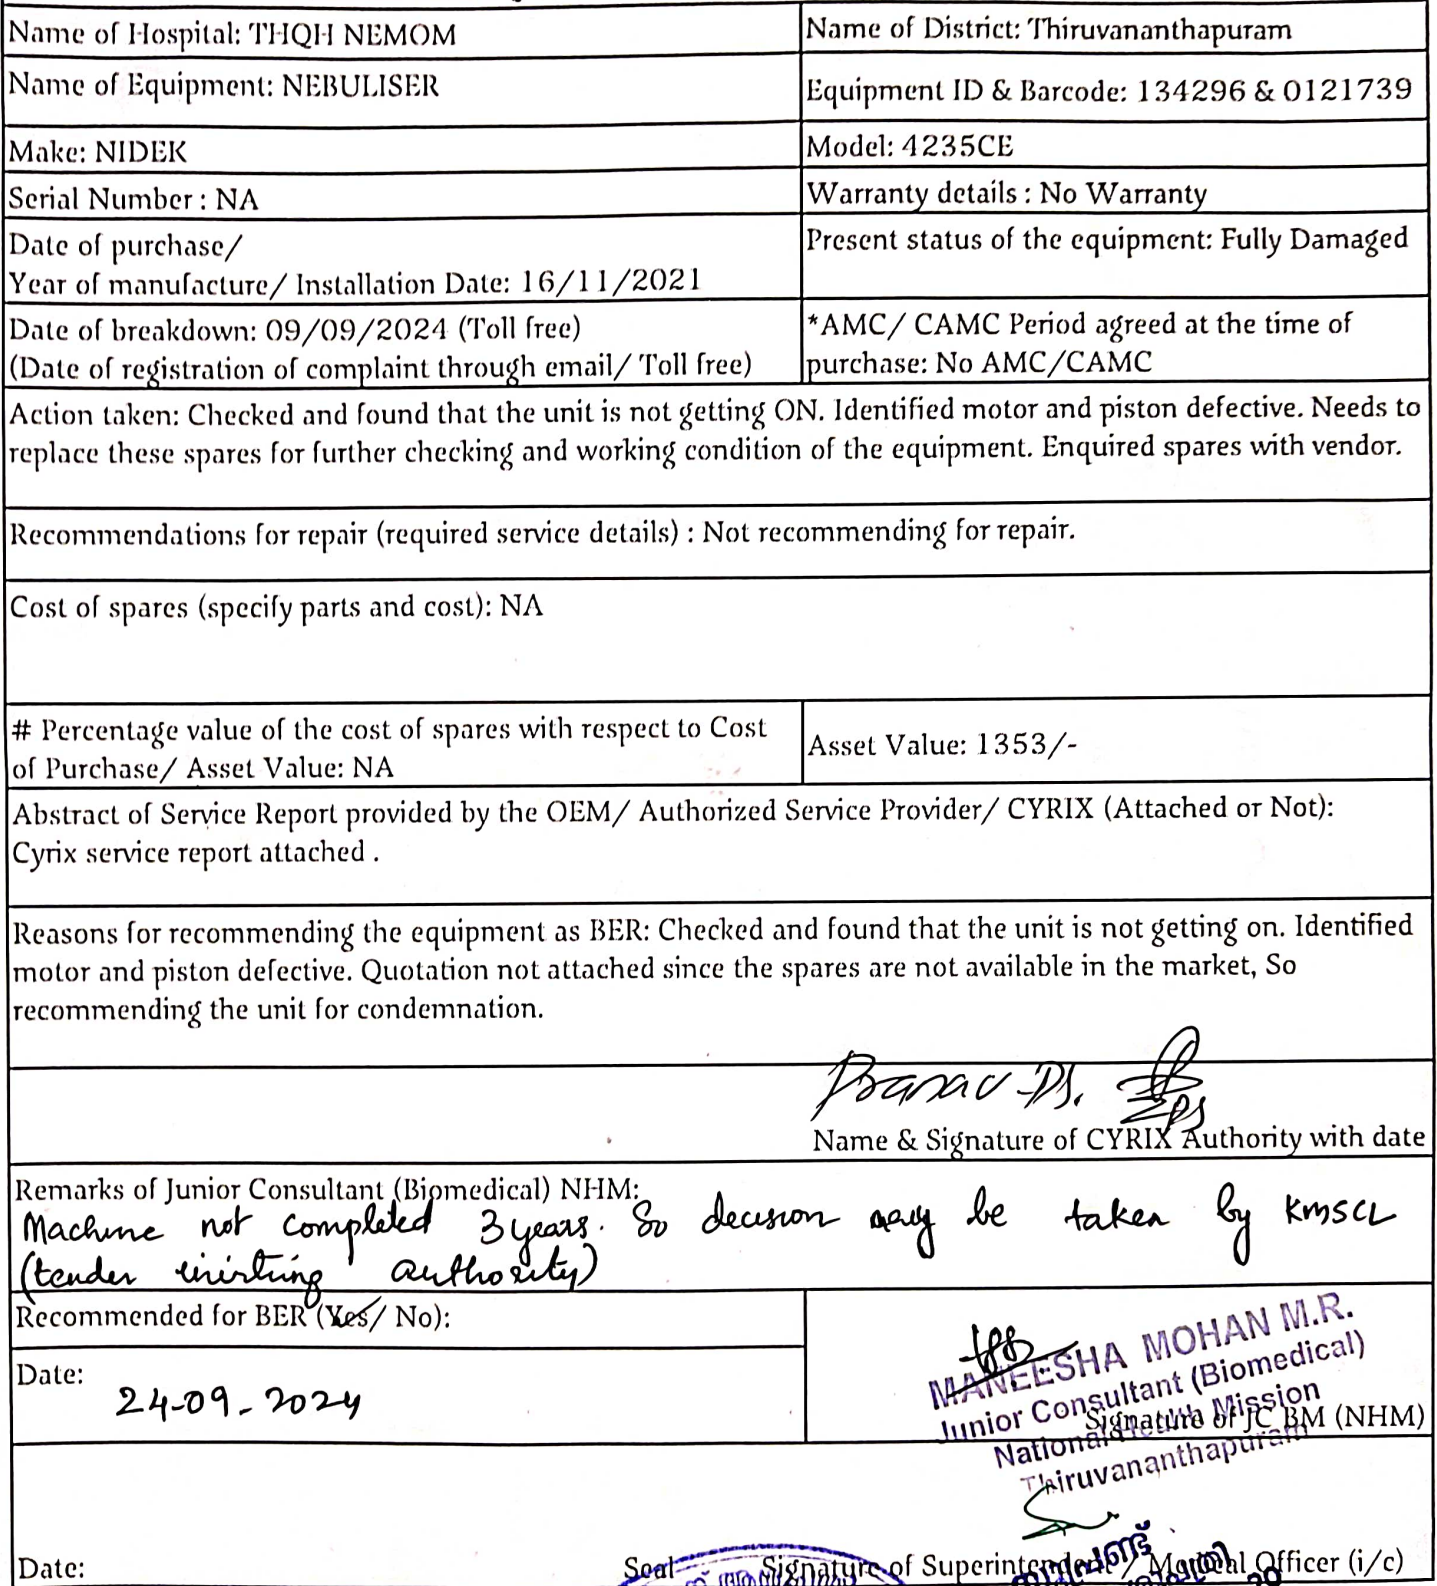 Name of Hospital: THQH NEMOM
Name of District: Thiruvananthapuram
Name of Equipment: NEBULISER
Equipment ID & Barcode: 134296 & 0121739
Make: NIDEK
Model: 4235CE
Serial Number : NA
Warranty details : No Warranty
Date of purchase/
Year of manufacture/ Installation Date: 16/11/2021
Present status of the equipment: Fully Damaged
Date of breakdown: 09/09/2024 (Toll free)
(Date of registration of complaint through email/ Toll free)
*AMC/ CAMC Period agreed at the time of
purchase: No AMC/CAMC
Action taken: Checked and found that the unit is not getting ON. Identified motor and piston defective. Needs to
replace these spares for further checking and working condition of the equipment. Enquired spares with vendor.
Recommendations for repair (required service details) : Not recommending for repair.
Cost of spares (specify parts and cost): NA
# Percentage value of the cost of spares with respect to Cost
of Purchase/ Asset Value: NA
Asset Value: 1353/-
Abstract of Service Report provided by the OEM/ Authorized Service Provider/ CYRIX (Attached or Not):
Cyrix service report attached .
Reasons for recommending the equipment as BER: Checked and found that the unit is not getting on. Identified
motor and piston defective. Quotation not attached since the spares are not available in the market, So
recommending the unit for condemnation.
Pranav DS.
Name & Signature of CYRIX Authority with date
Remarks of Junior Consultant (Biomedical) NHM:
Machine not completed 3 years. So decision may be taken by KMSCL
(tender inviting authority)
Recommended for BER (Yes/ No):
Date:
24-09-2024
MANEESHA MOHAN M.R.
Junior Consultant (Biomedical)
National Health Mission
Thiruvananthapuram
Signature of JC BM (NHM)
Date:
Seal
Signature of Superintendent / Medical Officer (i/c)